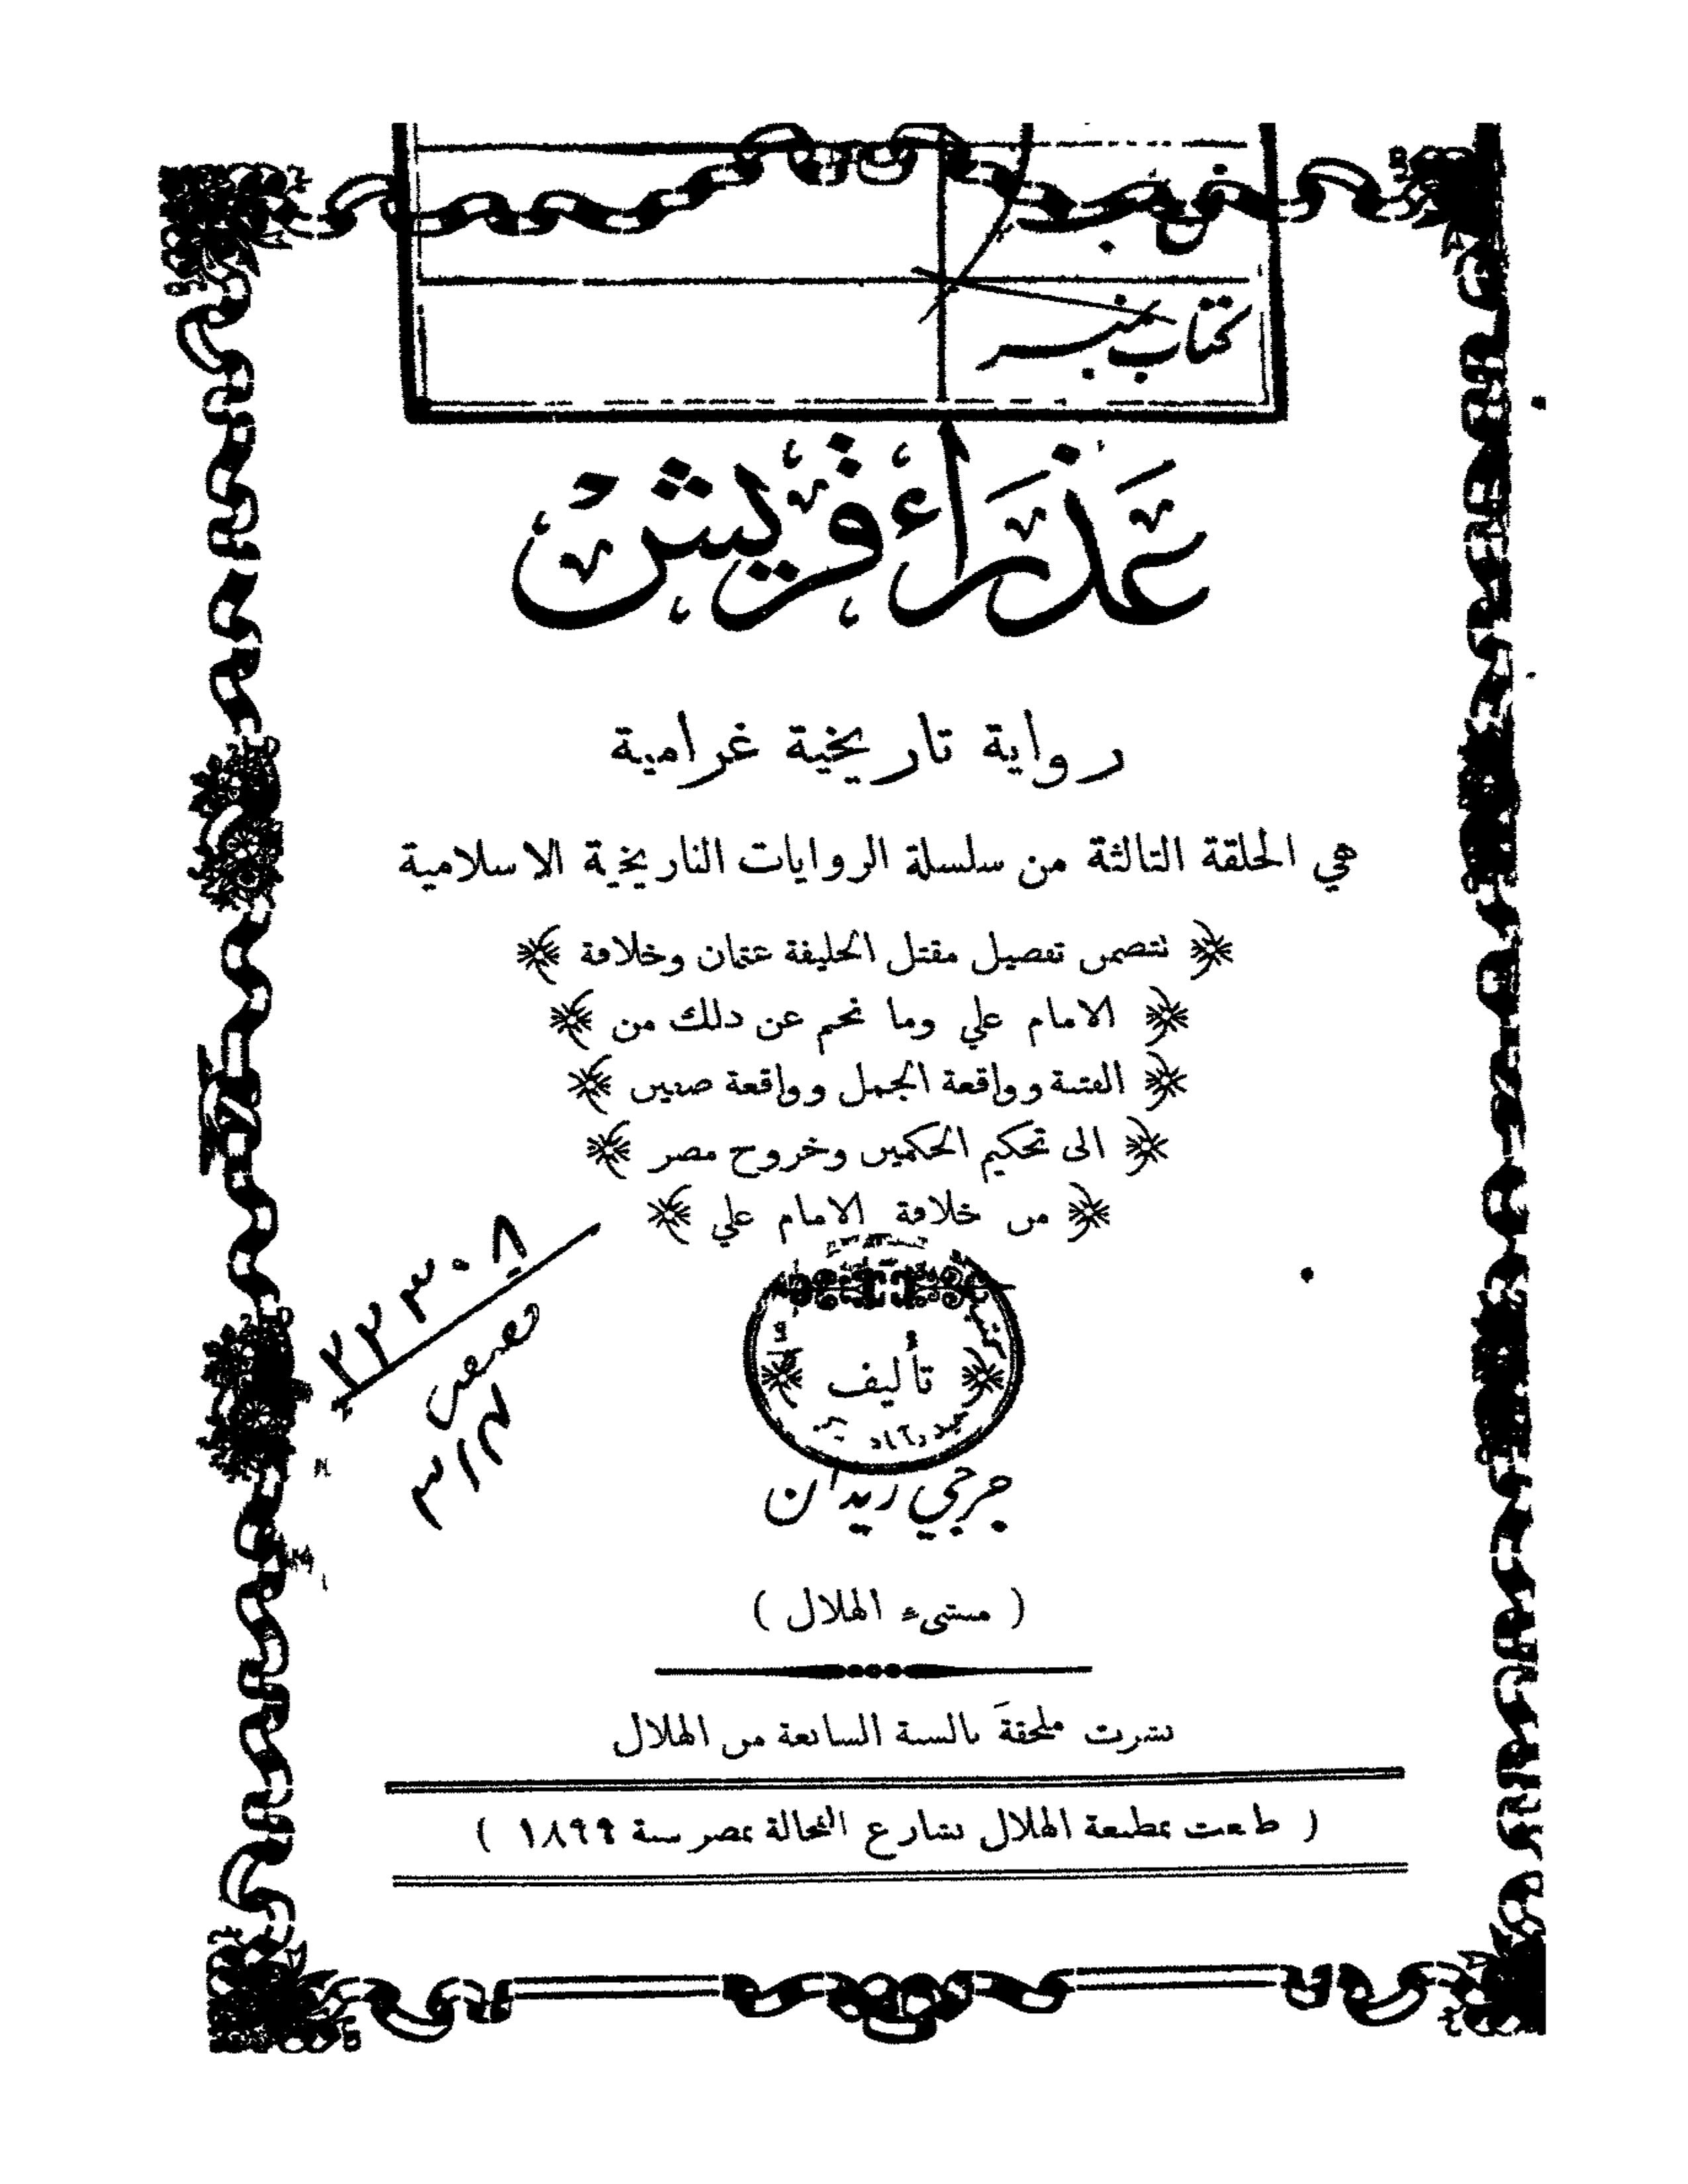 فن
كتاب نمبر
عذراء قريش
رواية تاريخية غرامية
هي الحلقة الثالثة من سلسلة الروايات التاريخية الاسلامية
تتضمن تفصيل مقتل الخليفة عثمان وخلافة
الامام علي وما نجم عن ذلك من
الفتنة وواقعة الجمل وواقعة صفين
الى تحكيم الحكمين وخروج مصر
من خلافة الامام علي
٢٣٣٠٨
تأليف
حيدرآباد
جرجي زيدان
( منشىء الهلال )
نشرت ملحقة بالسنة السابعة من الهلال
( طبعت بمطبعة الهلال بشارع الفجالة بمصر سنة ١٨٩٩ )